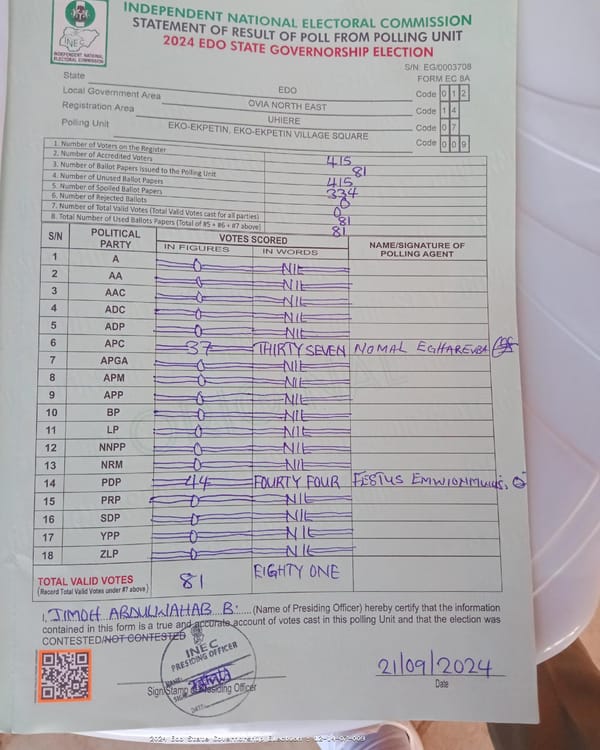 INDEPENDENT NATIONAL ELECTORAL COMMISSION
STATEMENT OF RESULT OF POLL FROM POLLING UNIT
2024 EDO STATE GOVERNORSHIP ELECTION
INEC
INDEPENDENT NATIONAL
ELECTORAL COMMISSION
S/N: EG/0003708
FORM EC 8A
State EDO Code 0 1 2
Local Government Area OVIA NORTH EAST Code 1 4
Registration Area UHIERE Code 0 7
Polling Unit EKO-EKPETIN, EKO-EKPETIN VILLAGE SQUARE Code 0 0 9
1. Number of Voters on the Register 415
2. Number of Accredited Voters 81
3. Number of Ballot Papers Issued to the Polling Unit 415
4. Number of Unused Ballot Papers 334
5. Number of Spoiled Ballot Papers 0
6. Number of Rejected Ballots 0
7. Number of Total Valid Votes (Total Valid Votes cast for all parties) 81
8. Total Number of Used Ballots Papers (Total of #5 + #6 + #7 above) 81
S/N POLITICAL PARTY VOTES SCORED NAME/SIGNATURE OF POLLING AGENT
IN FIGURES IN WORDS
1 A 0 NIL
2 AA 0 NIL
3 AAC 0 NIL
4 ADC 0 NIL
5 ADP 0 NIL
6 APC 37 THIRTY SEVEN NOMAL EGHAREVBA
7 APGA 0 NIL
8 APM 0 NIL
9 APP 0 NIL
10 BP 0 NIL
11 LP 0 NIL
12 NNPP 0 NIL
13 NRM 0 NIL
14 PDP 44 FOURTY FOUR FESTUS
15 PRP 0 NIL
16 SDP 0 NIL
17 YPP 0 NIL
18 ZLP 0 NIL
TOTAL VALID VOTES 81 EIGHTY ONE
(Record Total Valid Votes under #7 above)
I, JIMOH ABDULWAHAB B. (Name of Presiding Officer) hereby certify that the information
contained in this form is a true and accurate account of votes cast in this polling Unit and that the election was
CONTESTED/NOT CONTESTED
INEC
PRESIDING OFFICER
NAME:
SIGN:
DATE:
Sign/Stamp of Presiding Officer
21/09/2024
Date
2024 Edo State Governorship Election - 12-14-07-009